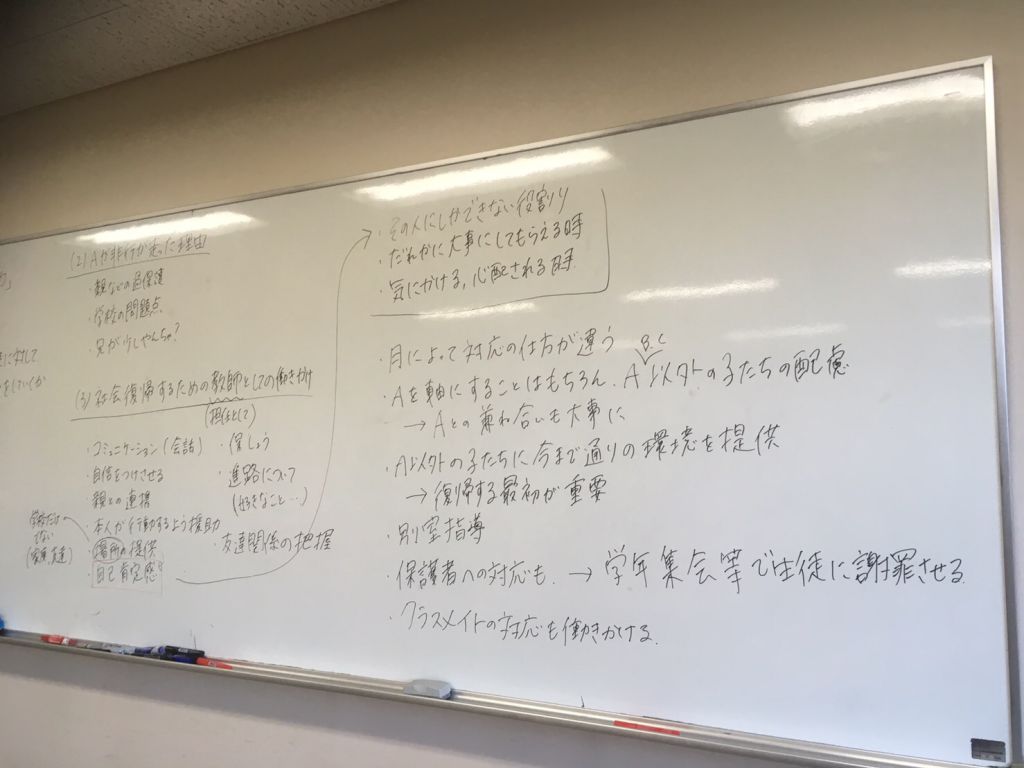 (2) Aが非行が走った理由
・親などの過保護
・学校の問題点
・兄が少しやんちゃ?
に対して
(3) 社会復帰するための教師としての働きかけ
(担任として)
・コミュニケーション(会話)
・自信をつけさせる
・親との連携
・本人が行動するよう援助
・場所の提供
・自己肯定感
でない
・進路について
(好きなこと…)
・友達関係の把握
・その人にしかできない役割り
・だれかに大事にしてもらえる時
・気にかける, 心配される時
・月によって対応の仕方が違う
B.C
・Aを軸にすることはもちろん、A以外の子たちの配慮
→ Aとの兼ね合いも大事に
・A以外の子たちに今まで通りの環境を提供
→ 復帰する最初が重要
・別室指導
・保護者への対応も. → 学年集会等で生徒に謝罪させる
・クラスメイトの対応も働きかける.